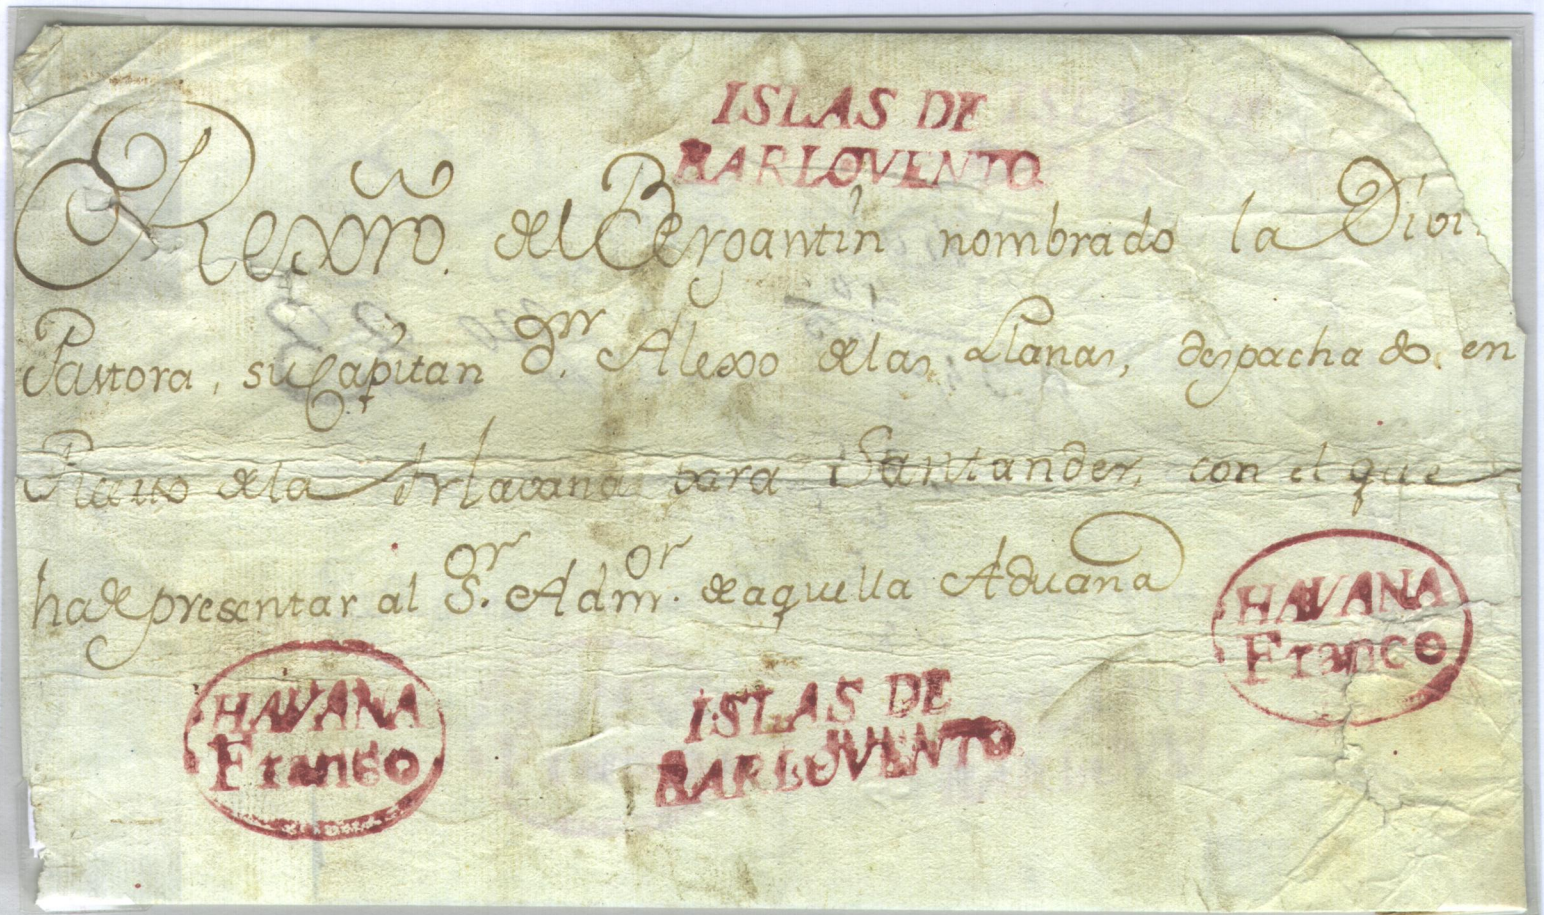 ISLAS DE
BARLOVENTO
Rexro. del Bergantin nombrado la Divi
Pastora, su Capitan Dn. Alexo de las Llanas, despachado en
de la Havana para Santander, con el que
ha de presentar al Sor. Admor. de aquella Aduana
HAVANA
Franco
HAVANA
Franco
ISLAS DE
BARLOVENTO